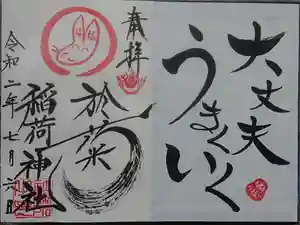 大丈夫
うまくいく
奉拝
於菊
稲荷神社
令和二年七月六日